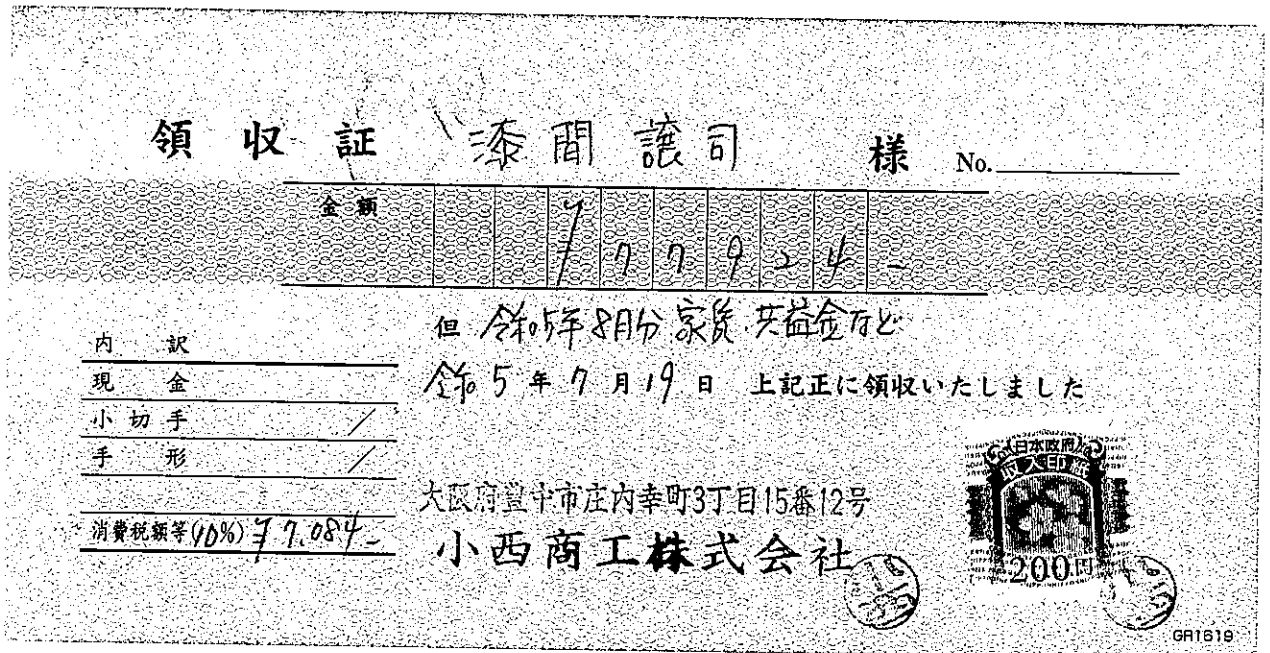 領収証 漆間譲司 様 No.
金額 ¥77924-
但 令和5年8月分 家賃、共益金など
令和5年7月19日 上記正に領収いたしました
内訳
現金
小切手 /
手形 /
消費税額等(10%) ¥7,084-
大阪府豊中市庄内幸町3丁目15番12号
小西商工株式会社
日本政府
収入印紙
200円
GR1619